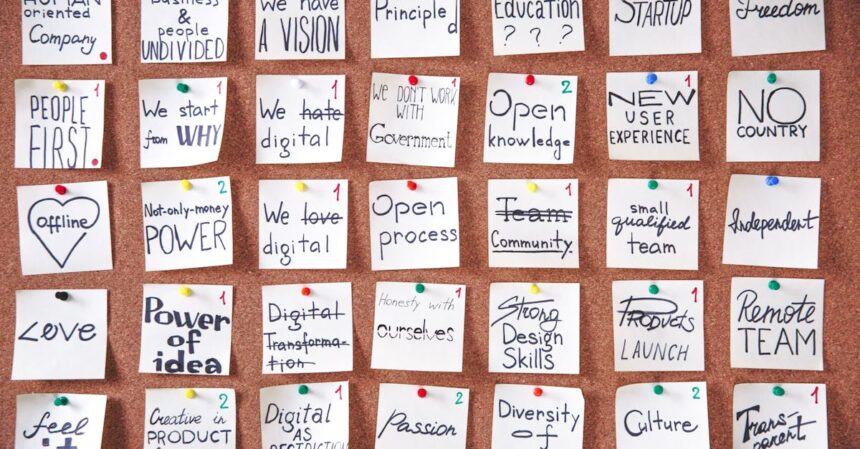 HUMAN
oriented
Company
Business
&
people
UNDIVIDED
We have
A VISION
Principle
d
Education
? ? ?
STARTUP
Freedom
1
PEOPLE
FIRST
1
We start
from WHY
1
We hate
digital
1
We DON'T WORK
WITH
Government
2
Open
knowledge
1
NEW
USER
EXPERIENCE
NO
COUNTRY
Offline
2
Not-only-money
POWER
1
We love
digital
Open
process
1
Team
Community
1
small
qualified
team
Independent
Love
1
Power
of
idea
Digital
Transforma-
tion
1
Honesty with
ourselves
Strong
Design
Skills
1
Products
LAUNCH
2
Remote
TEAM
feel
it
2
Creative in
PRODUCT
1
Digital
AS
RESTRICTION
2
Passion
Diversity
of
2
Culture
1
Trans-
parent